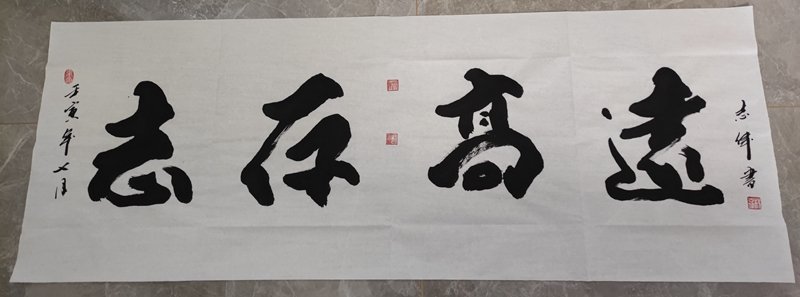 壬寅年七月
志存高遠
志伟書